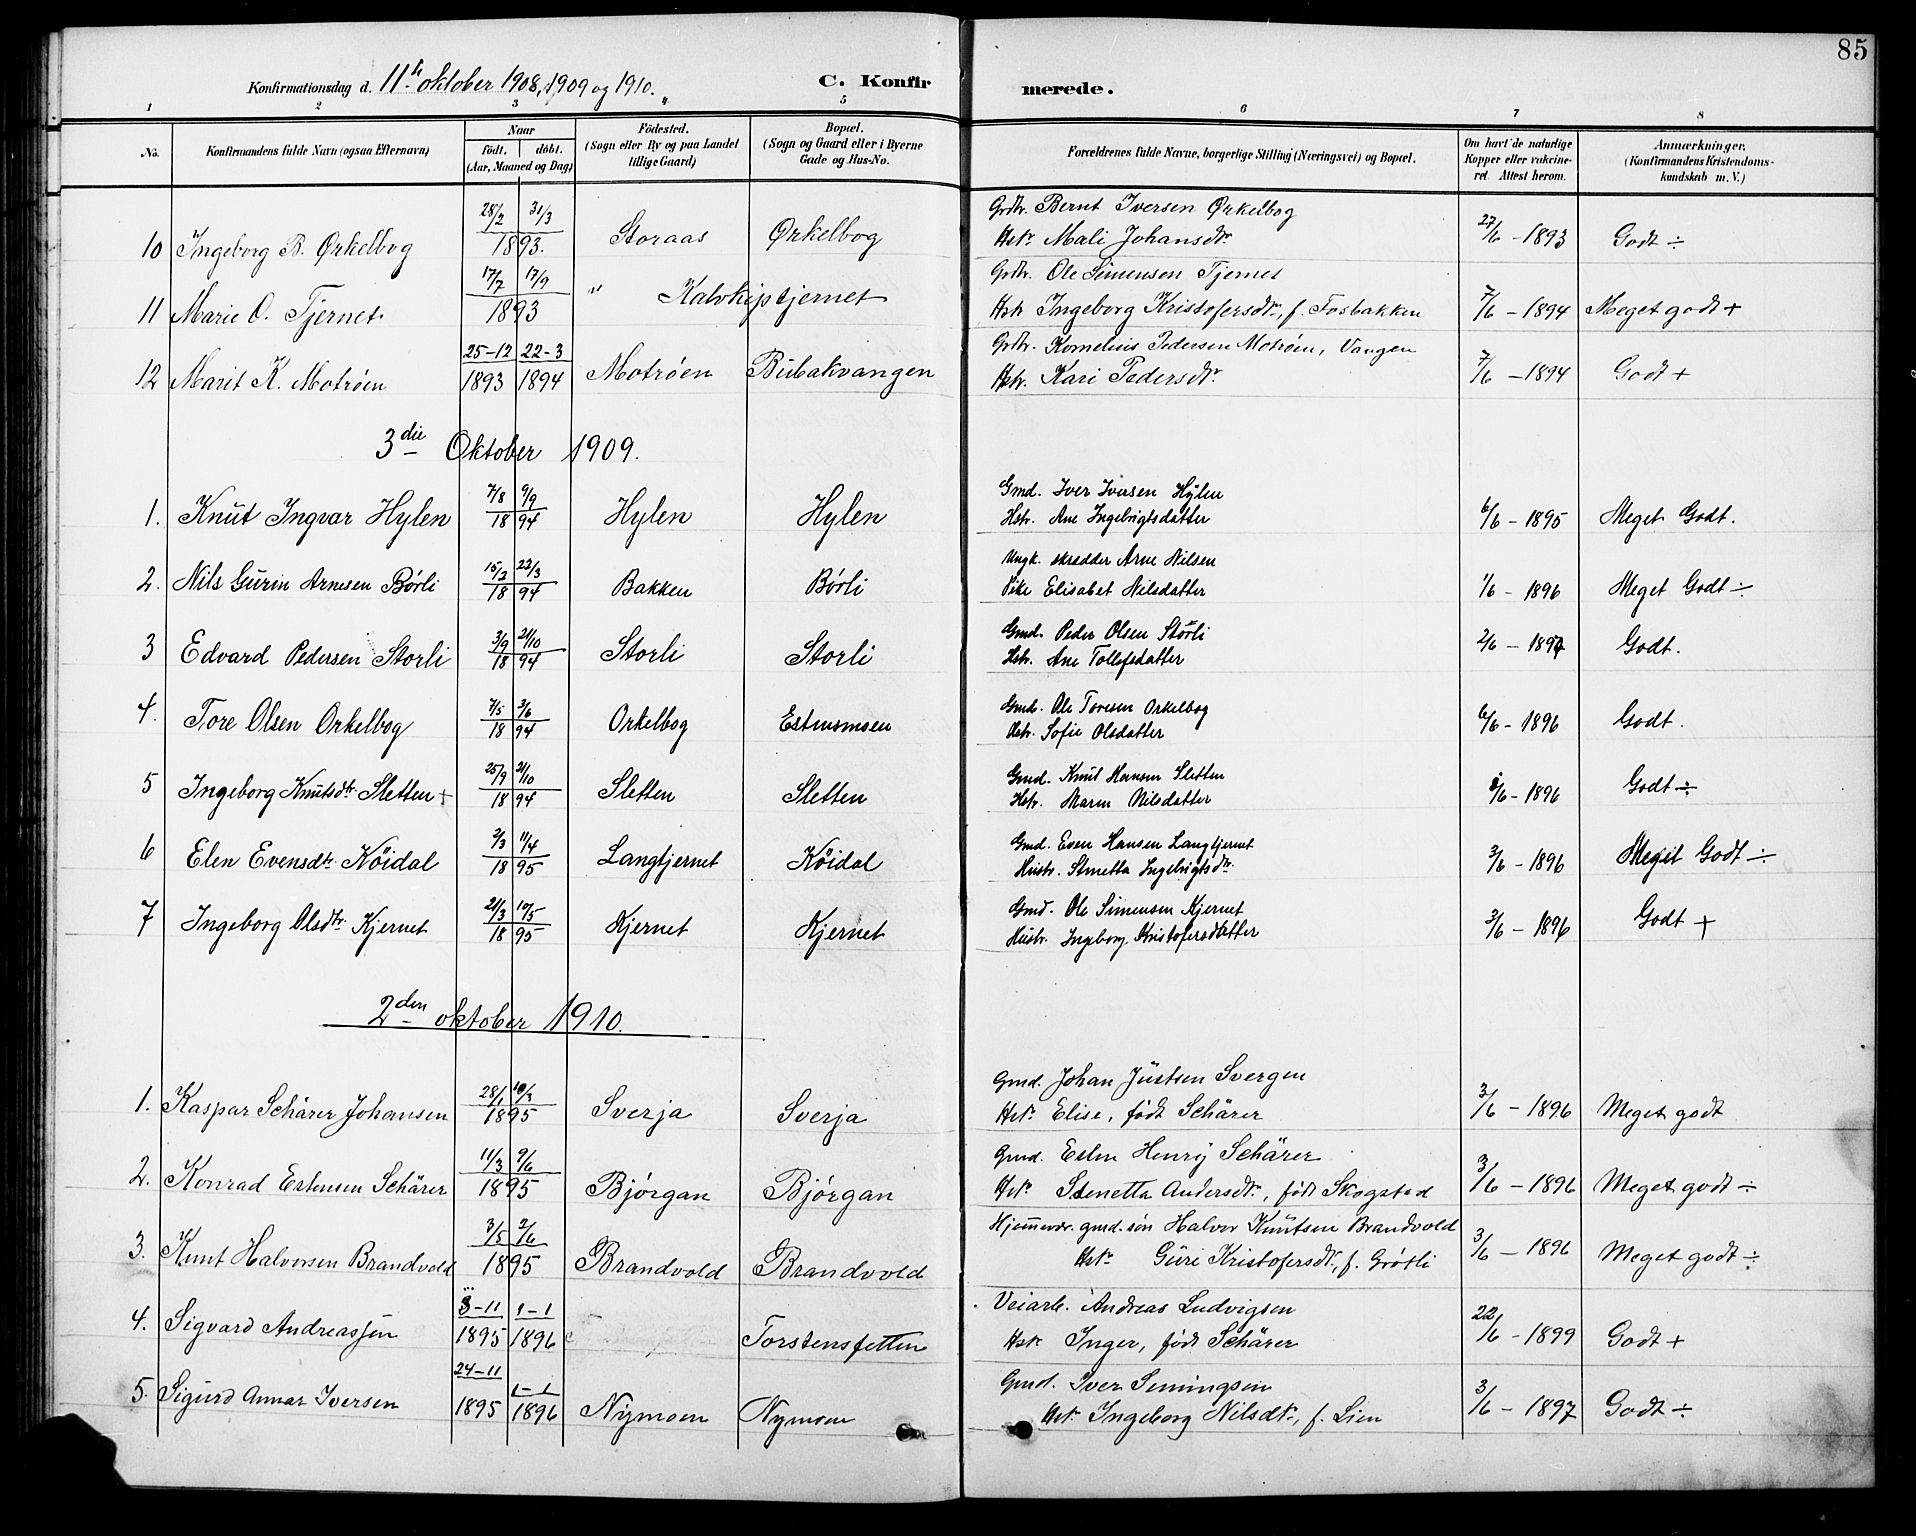 85
Konfirmationsdag d. 11te oktober 1908, 1909 og 1910. C. Konfirmerede.
1 2 3 5 6 7 8
No. Konfirmandens fulde Navn (ogsaa Efternavn) Naar födt. döbt. (Aar, Maaned og Dag) Födested. (Sogn eller By og paa Landet tillige Gaard) Bopæl. (Sogn og Gaard eller i Byerne Gade og Hus-No.) Forældrenes fulde Navne, borgerlige Stilling (Næringsvei) og Bopæl. Om havt de naturlige Kopper eller vakcineret Attest herom. Anmærkninger. (Konfirmandens Kristendomskundskab m. V.)
28/2 31/3 Grdbr. Bernt Iversen Ørkelbog
10 Ingeborg B. Ørkelbog 1893. Storaas Ørkelbog Hstr. Mali Johansdtr. 27/6 - 1893 Godt ÷
17/7 17/9 Grdbr. Ole Simensen Tjernet
11 Marie O. Tjernet 1893 " Kalvkiptjernet Hstr Ingeborg Kristofersdtr., f. Fosbakken 7/6 - 1894 Meget godt +
25-12 22-3 Grdbr. Kornelius Pedersen Motrøen, Vangen
12 Marit K. Motrøen 1893 1894 Motrøen Bubakvangen Hstr. Kari Pedersdtr. 7/6 - 1894 Godt +
3die Oktober 1909.
7/8 9/9 Gmd. Iver Iversen Hylen
1. Knut Ingvar Hylen 1894 Hylen Hylen Hstr. Ane Ingebrigtsdatter 6/6 - 1895 Meget Godt.
15/2 22/3 Ungk. skrædder Arne Nilsen
2. Nils Gurin Arnesen Børli 1894 Bakken Børli Pike Elisabet Nilsdatter 1/6 - 1896 Meget Godt ÷
3/9 21/10 Gmd. Peder Olsen Storli
3 Edvard Pedersen Storli 1894 Storli Storli Hstr. Ane Tollefsdatter 2/6 - 1897 Godt.
7/5 3/6 Gmd. Ole Toresen Orkelbog
4. Tore Olsen Orkelbog 1894 Orkelbog Estensmoen Hstr. Sofie Olsdatter 6/6 - 1896 Godt.
25/9 21/10 Gmd. Knut Hansen Sletten
5 Ingeborg Knutsdtr Sletten + 1894 Sletten Sletten Hstr. Maren Nilsdatter /6 - 1896 Godt ÷
2/3 11/4 Gmd. Even Hansen Langtjernet
6 Elen Evensdtr. Köidal 1895 Langtjernet Köidal Hustr. Stenetta Ingebrigtsdtr. 3/6 - 1896 Meget Godt ÷
21/3 19/5 Gmd. Ole Simensen Kjernet
7 Ingeborg Olsdtr. Kjernet 1895 Kjernet Kjernet Hustr. Ingeborg Kristofersdatter 3/6 - 1896 Godt +
2den oktober 1910.
28/1 10/3 Gmd. Johan Justsen Svergen
1. Kaspar Schärer Johansen 1895 Sverja Sverja Hstr. Elise, født Schärer 3/6 - 1896 Meget godt
11/3 9/6 Gmd. Esten Henrij Schärer
2. Konrad Estensen Schärer 1895 Bjørgan Bjørgan Hstr. Stenetta Andersdtr., født Skogstad 3/6 - 1896 Meget godt ÷
3/5 2/6 Hjemmevær. gmd. søn Halvor Knutsen Brandvold
3. Knut Halvorsen Brandvold 1895 Brandvold Brandvold Hstr. Guri Kristofersdtr., f. Grøtli 3/6 - 1896 Meget godt ÷
3-11 1-1 Veiarb. Andreas Ludvigsen
4. Sigvard Andreassen 1895 1896 Torstensfetten Hstr. Inger, født Schärer 22/6 - 1899 Godt +
24-11 1-1 Gmd. Iver Simingsen
5. Sigurd Annar Iversen 1895 1896 Nymoen Nymoen Hstr. Ingeborg Nilsdtr., f. Lien 3/6 - 1897 Godt ÷